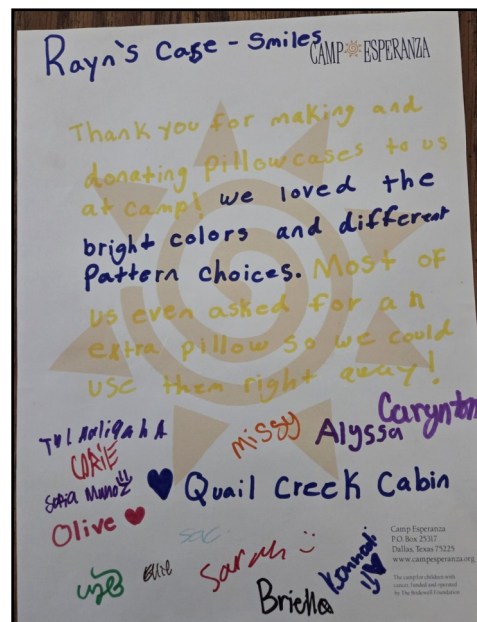 Rayn's Case - Smiles
CAMP ESPERANZA
Thank you for making and
donating pillowcases to us
at camp! we loved the
bright colors and different
Pattern choices. Most of
us even asked for an
extra pillow so we could
use them right away!
Carynton
missy
Alyssa
CORIE
Sofia Munoz
Quail Creek Cabin
Olive
Sarah
Ellie
Briella
Camp Esperanza
P.O. Box 25317
Dallas, Texas 75225
www.campesperanza.org
The camp for children with
cancer. Funded and operated
by The Bridewell Foundation